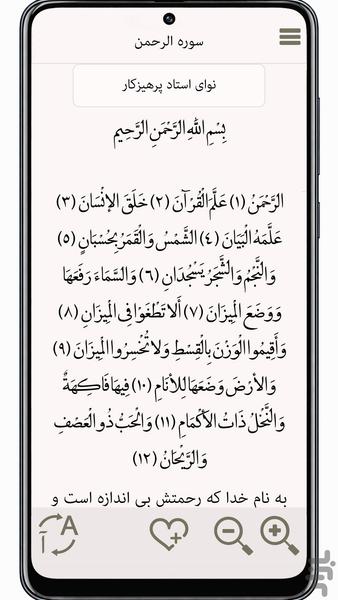 سوره الرحمن
نوای استاد پرهیزکار
بِسْمِ اللَّهِ الرَّحْمَنِ الرَّحِيمِ
الرَّحْمَنُ (۱) عَلَّمَ الْقُرْآنَ (۲) خَلَقَ الإِنْسَانَ (۳)
عَلَّمَهُ الْبَيَانَ (۴) الشَّمْسُ وَالْقَمَرُ بِحُسْبَانٍ (۵)
وَالنَّجْمُ وَالشَّجَرُ يَسْجُدَانِ (۶) وَالسَّمَاءَ رَفَعَهَا
وَوَضَعَ الْمِيزَانَ (۷) أَلا تَطْغَوْا فِي الْمِيزَانِ (۸)
وَأَقِيمُوا الْوَزْنَ بِالْقِسْطِ وَلا تُخْسِرُوا الْمِيزَانَ (۹)
وَالأرْضَ وَضَعَهَا لِلأنَامِ (۱۰) فِيهَا فَاكِهَةٌ
وَالنَّخْلُ ذَاتُ الأكْمَامِ (۱۱) وَالْحَبُّ ذُو الْعَصْفِ
وَالرَّيْحَانُ (۱۲)
به نام خدا که رحمتش بی اندازه است و
A
آ